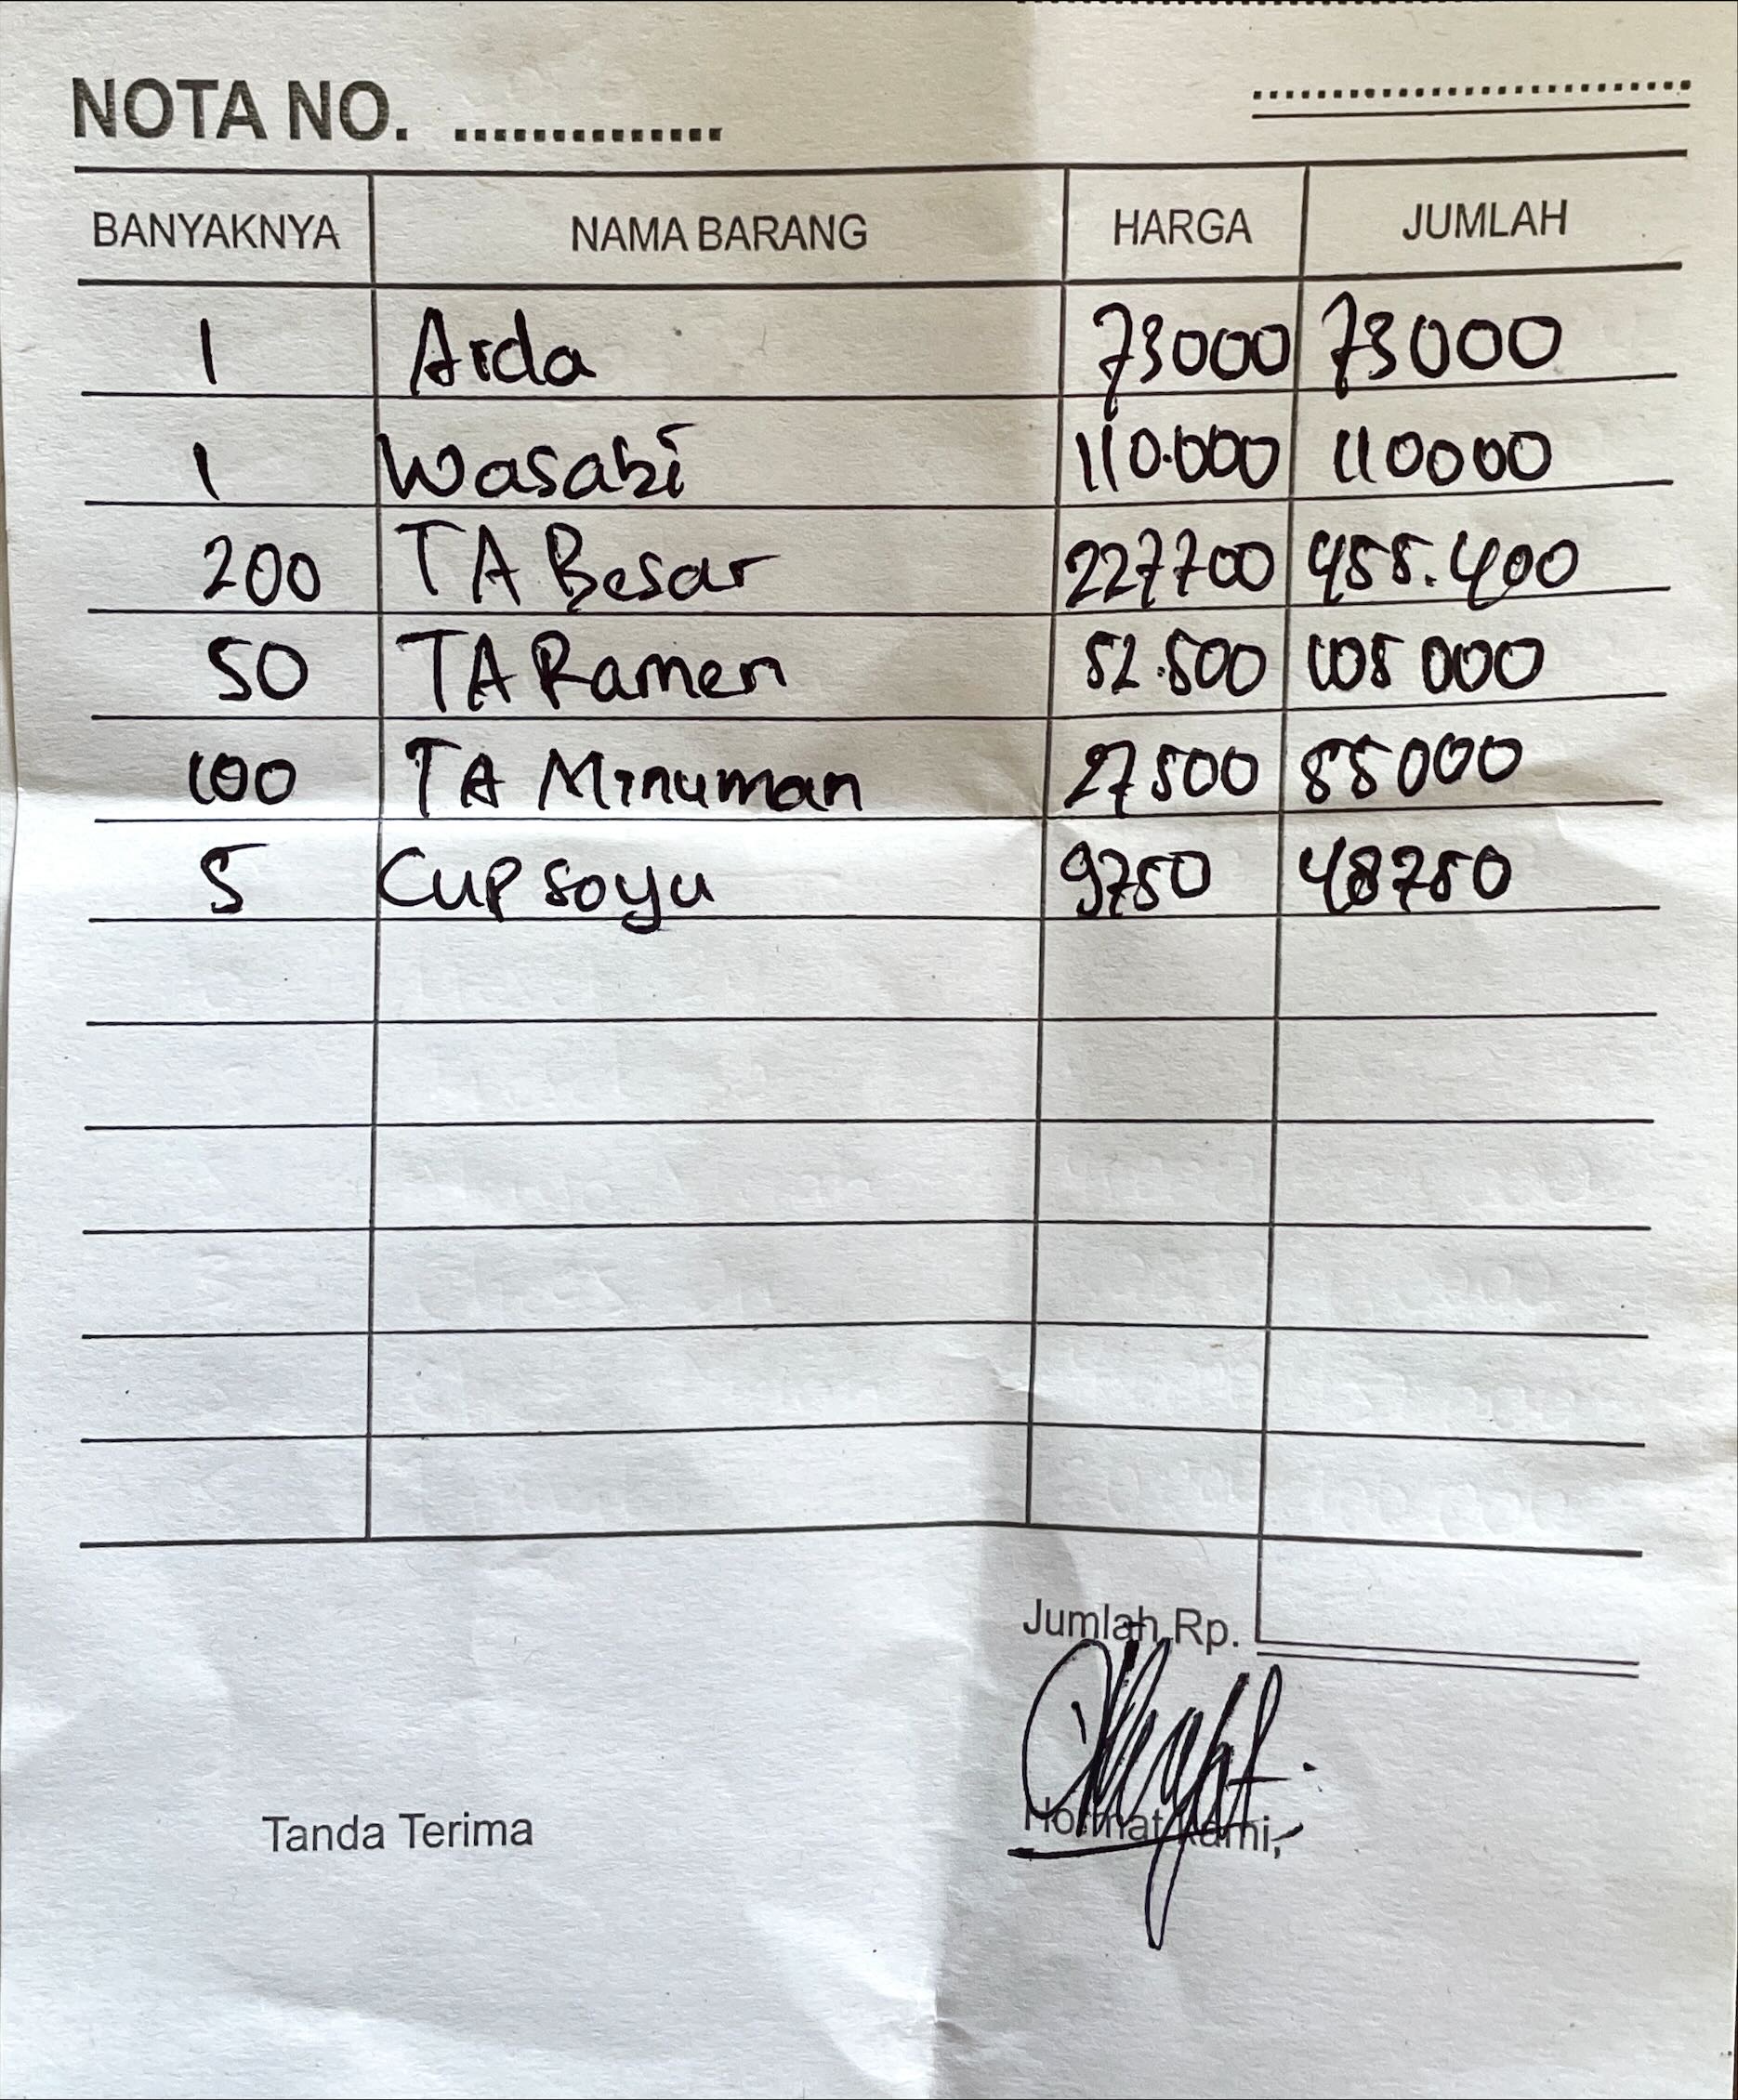 NOTA NO. ..............
BANYAKNYA NAMA BARANG HARGA JUMLAH
1 Aida 73000 73000
1 Wasabi 110.000 110000
200 TA Besar 227700 455.400
50 TA Ramen 52.500 105 000
100 TA Minuman 27500 55000
5 Cup soyu 9750 48750
Jumlah Rp.
Tanda Terima Hormat Kami,